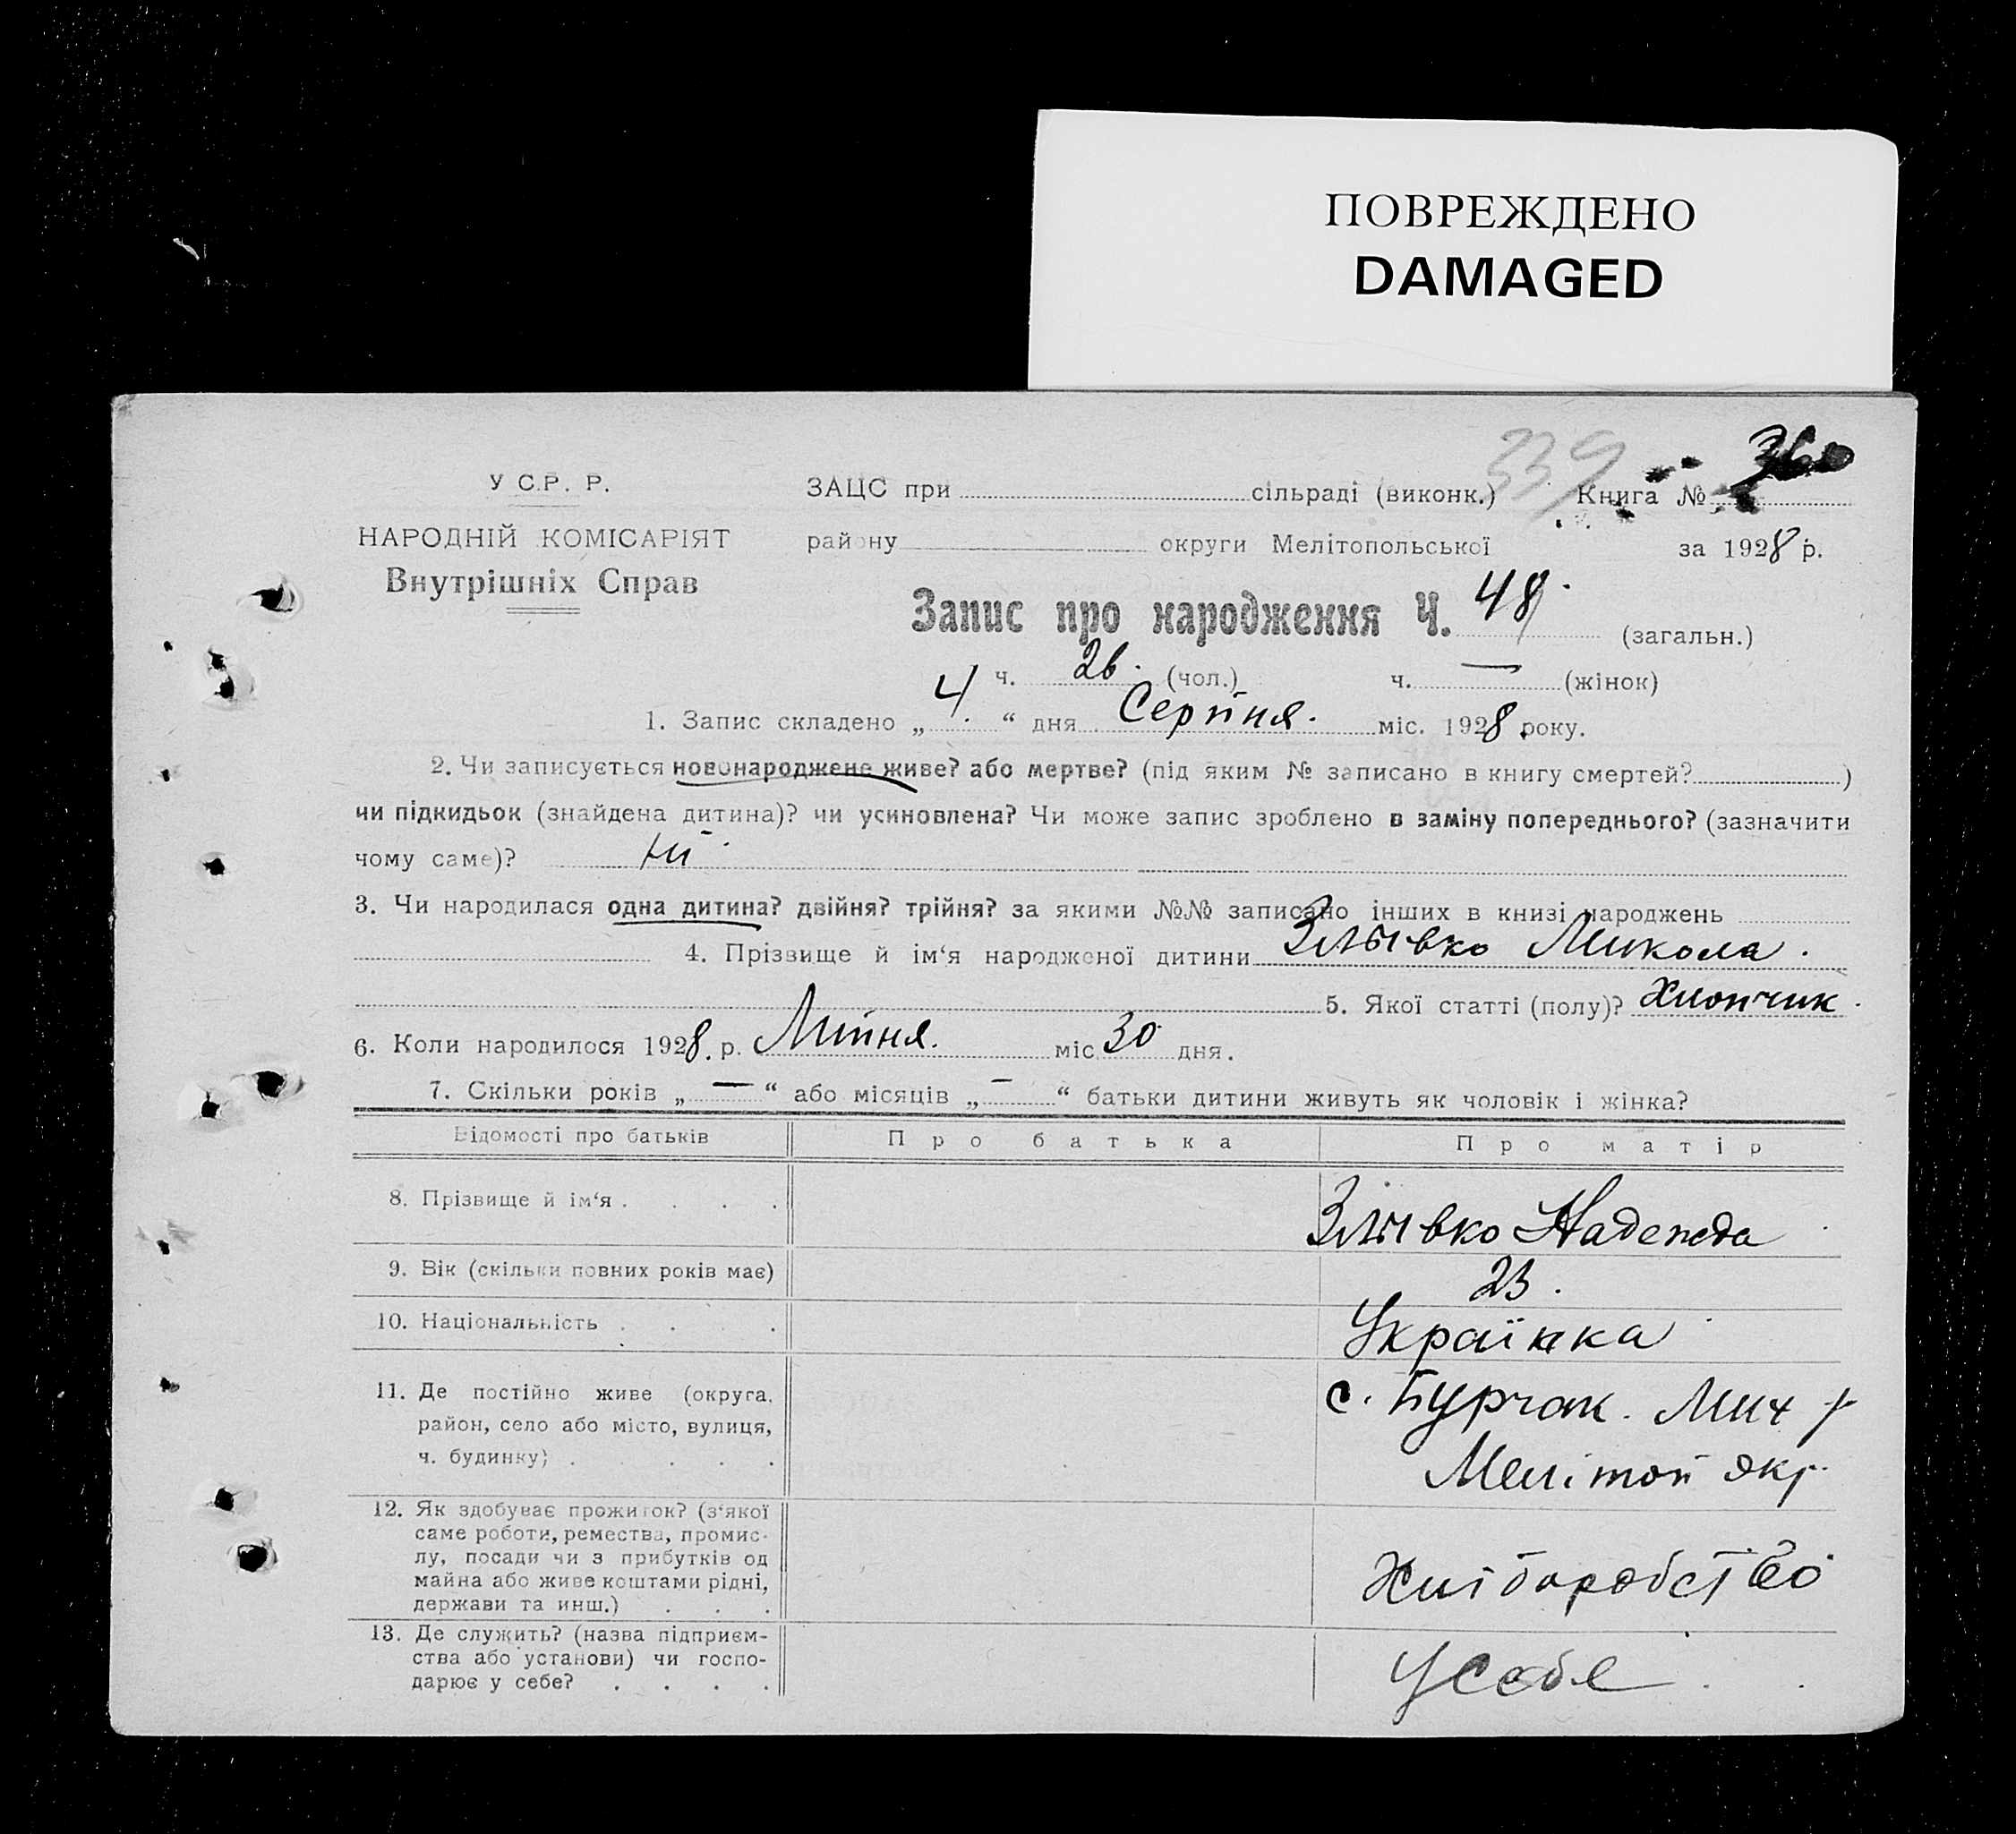 ПОВРЕЖДЕНО
DAMAGED
339 360
У С.Р. Р. ЗАЦС при сільраді (виконк.) Книга №
НАРОДНІЙ КОМІСАРІЯТ району округи Мелітопольської за 1928 р.
Внутрішніх Справ
Запис про народження Ч. 48 (загальн.)
ч. 26. (чол.) ч. — (жінок)
1. Запис складено „ 4. “ дня Серпня. міс. 1928 року.
2. Чи записується новонароджене живе? або мертве? (під яким № записано в книгу смертей? )
чи підкидьок (знайдена дитина)? чи усиновлена? Чи може запис зроблено в заміну попереднього? (зазначити
чому саме)? ні
3. Чи народилася одна дитина? двійня? трійня? за якими №№ записано інших в книзі народжень
4. Прізвище й ім‘я народженої дитини Микола.
5. Якої статті (полу)? Хлопчик.
6. Коли народилося 1928. р. Липня. міс 30 дня.
7. Скільки років „ — “ або місяців „ — “ батьки дитини живуть як чоловік і жінка?
Відомості про батьків Про батька Про матір
8. Прізвище й ім‘я . . . . Надежда
9. Вік (скільки повних років має) 23.
10. Національність . . . . Українка
11. Де постійно живе (округа, с. Бурчак. Мих р
район, село або місто, вулиця,
ч. будинку) . . . . . Мелітоп окр.
12. Як здобуває прожиток? (з‘якої
саме роботи, ремества, промис-
лу, посади чи з прибутків од
майна або живе коштами рідні, Хліборобство
держави та инш.) . . .
13. Де служить? (назва підприєм-
ства або установи) чи госпо- У себе
дарює у себе? . . . .